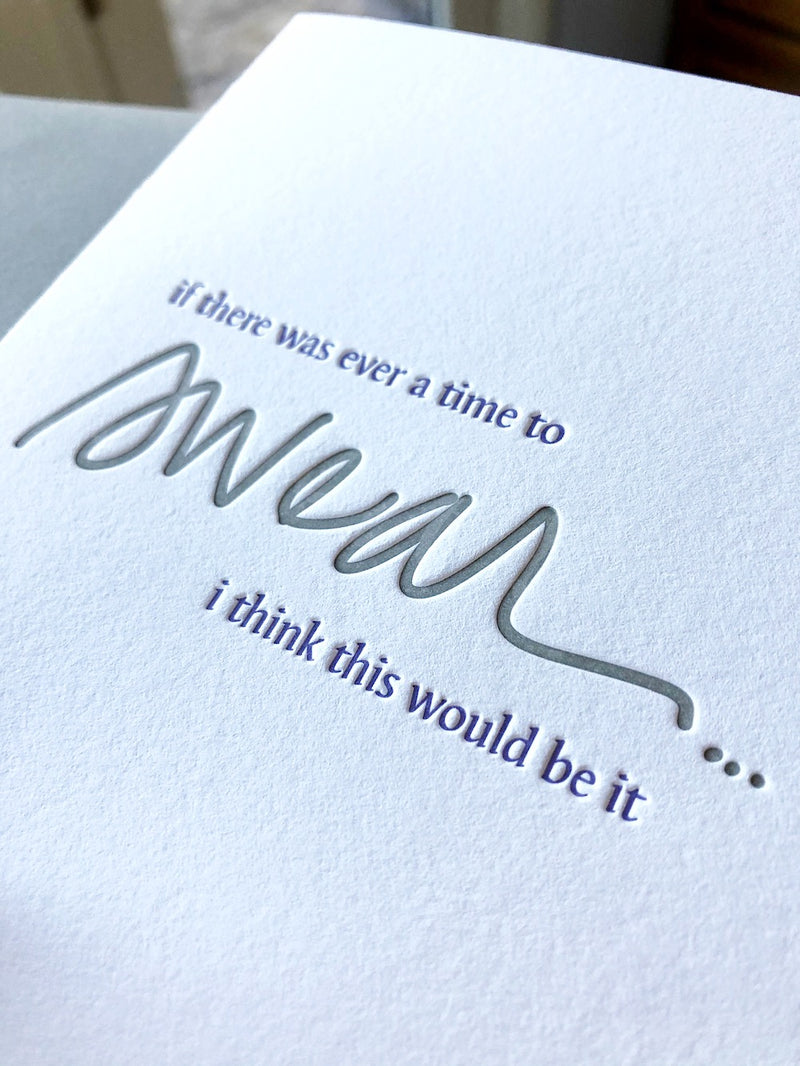 if there was ever a time to
swear...
i think this would be it